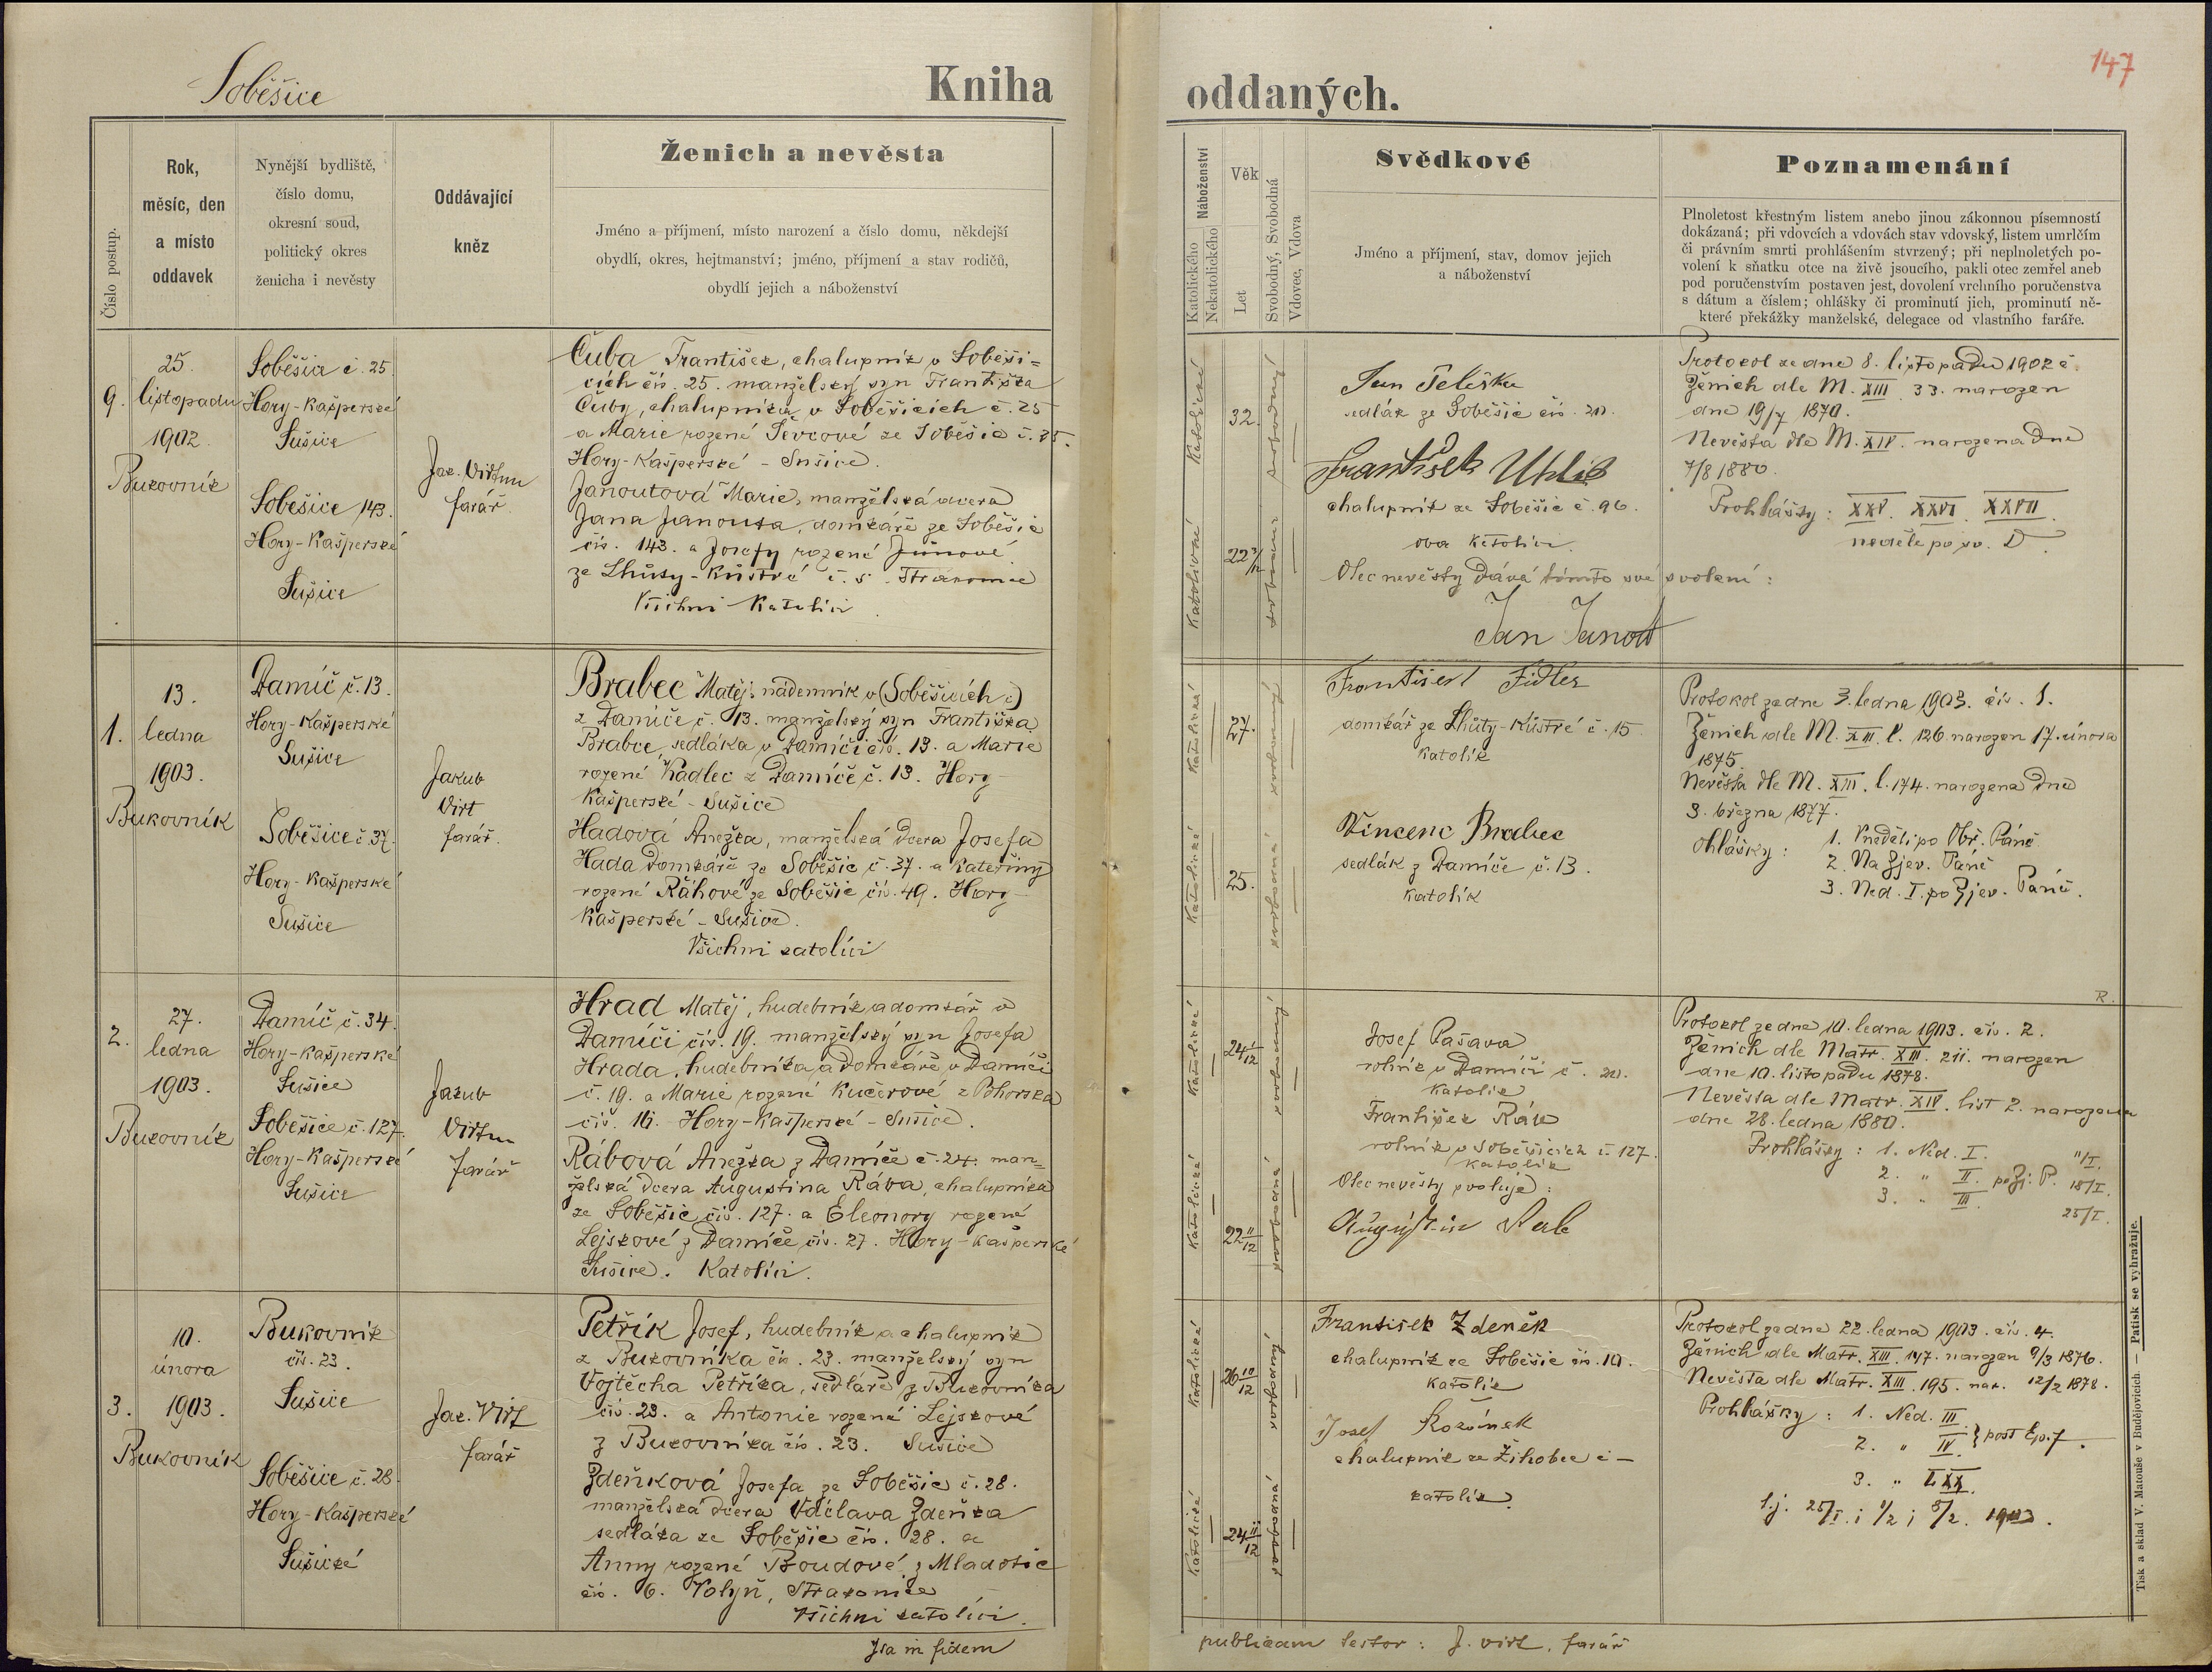 Soběšice
Kniha
Číslo postup.
Rok,
měsíc, den
a místo
oddavek
Nynější bydliště,
číslo domu,
okresní soud,
politický okres
ženicha i nevěsty
Oddávající
kněz
Ženich a nevěsta
Jméno a příjmení, místo narození a číslo domu, někdejší
obydlí, okres, hejtmanství; jméno, příjmení a stav rodičů,
obydlí jejich a náboženství
9.
25.
listopadu
1902
Bukovník
Soběšice č. 25.
Hory-Kašperské
Sušice
Soběšice 143.
Hory-Kašperské
Sušice
farář
Čuba František, chalupník v Soběši=
cích čís. 25. manželský syn Františka
Čuby, chalupníka v Soběšicích č. 25
a Marie rozené Ševcové ze Soběšic č. 35.
Hory-Kašperské - Sušice.
Janoutová Marie, manželská dcera
Jana Janouta, domkáře ze Soběšic
čís. 143. a Josefy rozené
ze Lhůty-Kůstré č. 5. Strakonice
Všichni Katolíci.
1.
13.
ledna
1903.
Bukovník
Damíč č. 13.
Hory-Kašperské
Sušice
Soběšice č. 37.
Hory-Kašperské
Sušice
Jakub
Virt
farář.
Brabec Matěj nádenník v (Soběšicích č)
z Damíče č. 13. manželský syn Františka
Brabce, sedláka v Damíči čís. 13. a Marie
rozené Kadlec z Damíče č. 13. Hory-
Kašperské - Sušice
Hadová Anežka, manželská dcera Josefa
Hada domkáře ze Soběšic č. 37. a Kateřiny
rozené Ráhové ze Soběšic čís. 49. Hory-
Kašperské - Sušice.
Všichni katolíci
2.
27.
ledna
1903.
Bukovník
Damíč č. 34.
Hory-Kašperské
Sušice
Soběšice č. 127.
Hory-Kašperské
Sušice
Jakub
farář
Hrad Matěj, hudebník a domkář v
Damíči čís. 19. manželský syn Josefa
Hrada, hudebníka a domkáře v Damíči
č. 19. a Marie rozené Kučerové z Pohorska
čís. 16. Hory-Kašperské - Sušice.
Rábová Anežka z Damíče č. 24. man=
želská dcera Augustina Rába, chalupníka
ze Soběšic čís. 127. a Eleonory rozené
Lejskové z Damíče čís. 27. Hory-Kašperské
Sušice. Katolíci.
3.
10.
února
1903.
Bukovník
Bukovník
čís. 23.
Sušice
Soběšice č. 28.
Hory-Kašperské
Sušické
Jak. Virt
farář
Petřík Josef, hudebník a chalupník
z Bukovníka čís. 23. manželský syn
Vojtěcha Petříka, sedláře z Bukovníka
čís. 23. a Antonie rozené Lejskové
z Bukovníka čís. 23. Sušice
Zdeňková Josefa ze Soběšic č. 28.
manželská dcera Václava Zdeňka
sedláka ze Soběšic čís. 28. a
Anny rozené Boudové z Mladotic
čís. 6. Volyň, Strakonice
Všichni katolíci.
Ita in fidem
147
oddaných.
Náboženství
Katolického
Nekatolického
Věk
Let
Svobodný, Svobodná
Vdovec, Vdova
Svědkové
Jméno a příjmení, stav, domov jejich
a náboženství
Poznamenání
Plnoletost křestným listem anebo jinou zákonnou písemností
dokázaná; při vdovcích a vdovách stav vdovský, listem umrlčím
či právním smrti prohlášením stvrzený; při neplnoletých po-
volení k sňatku otce na živě jsoucího, pakli otec zemřel aneb
pod poručenstvím postaven jest, dovolení vrchního poručenstva
s dátum a číslem; ohlášky či prominutí jich, prominutí ně-
které překážky manželské, delegace od vlastního faráře.
Katolické
Katolické
32.
svobodný
svobodná
Jan
sedlák ze Soběšic čís. 20.
František Uhlíř
chalupník ze Soběšic č. 96.
oba katolíci.
Otec nevěsty dává tímto své svolení:
Jan Janout
Protokol ze dne 8. listopadu 1902 č
Ženich dle M. XIII 33. narozen
dne 19/7 1870.
Nevěsta dle M. XIV. narozena dne
7/8 1880.
Prohlášky: XXV. XXVI. XXVII.
neděle po sv. D.
Katolické
Katolické
27.
25.
svobodný
svobodná
František Fidler
domkář ze Lhůty-Kůstré č. 15
Katolík
Vincenc Brabec
sedlák z Damíče č. 13.
Katolík
Protokol ze dne 3. ledna 1903. čís. 1.
Ženich dle M. XIII. l. 126. narozen 17. února
1875.
Nevěsta dle M. XIII. l. 174. narozena dne
3. března 1877.
Ohlášky: 1. V neděli po Obř. Páně
2. Na Zjev. Páně
3. Ned. I. po Zjev. Páně.
R.
Katolické
Katolické
24 1/12
22 11/12
svobodný
svobodná
Josef Pašava
rolník v Damíči č. 20.
Katolík
František Ráb
rolník v Soběšicích č. 127.
Katolík
Otec nevěsty svoluje:
Augustin Rab
Protokol ze dne 10. ledna 1903. čís. 2.
Ženich dle Matr. XIII. 211. narozen
dne 10. listopadu 1878.
Nevěsta dle Matr. XIV. list 2. narozena
dne 28. ledna 1880.
Prohlášky: 1. Ned. I. 11/I.
2. " II. po Zj. P. 18/I.
3. " III. 25/I.
Katolické
Katolické
26 10/12
24 11/12
svobodný
svobodná
František Zdeněk
chalupník ze Soběšic čís. 10.
Katolík
Josef
chalupník ze Žihobec č –
katolík.
Protokol ze dne 22. ledna 1903. čís. 4.
Ženich dle Matr. XIII. 147. narozen 9/3 1876.
Nevěsta dle Matr. XIII. 195. nar. 12/2 1878.
Prohlášky: 1. Ned. III.
2. " IV. } post Epif.
3. " LXX.
t.j. 25/I. i 1/2 i 8/2. 1903.
publicam testor: J. Virt, farář
Tisk a sklad V. Matouše v Budějovicích — Patisk se vyhražuje.